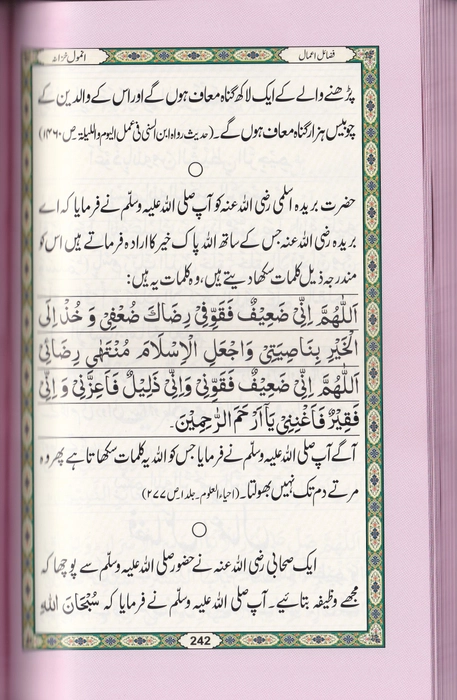 فضائل اعمال
انمول خزانہ
پڑھنے والے کے ایک لاکھ گناہ معاف ہوں گے اور اس کے والدین کے
چوبیس ہزار گناہ معاف ہوں گے۔ (حدیث رواہ ابن السنی فی عمل الیوم واللیلة ص ۱۴۶۰)
حضرت بریدہ اسلمی رضی اللہ عنہ کو آپ صلی اللہ علیہ وسلّم نے فرمایا کہ اے
بریدہ رضی اللہ عنہ جس کے ساتھ اللہ پاک خیر کا ارادہ فرماتے ہیں اس کو
مندرجہ ذیل کلمات سکھا دیتے ہیں، وہ کلمات یہ ہیں:
اَللّٰهُمَّ اِنِّیْ ضَعِیْفٌ فَقَوِّ فِیْ رِضَاكَ ضُعْفِیْ وَ خُذْ اِلَی
الْخَیْرِ بِنَاصِیَتِیْ وَاجْعَلِ الْاِسْلَامَ مُنْتَهٰی رِضَائِیْ
اَللّٰهُمَّ اِنِّیْ ضَعِیْفٌ فَقَوِّنِیْ وَاِنِّیْ ذَلِیْلٌ فَاَعِزَّنِیْ وَ اِنِّیْ
فَقِیْرٌ فَاَغْنِنِیْ یَا اَرْحَمَ الرّٰحِمِیْنَ۔
آگے آپ صلی اللہ علیہ وسلّم نے فرمایا جس کو اللہ یہ کلمات سکھاتا ہے پھر وہ
مرتے دم تک نہیں بھولتا۔ (احیاء العلوم۔ جلد ۱ ص ۲۷۷)
ایک صحابی رضی اللہ عنہ نے حضور صلی اللہ علیہ وسلّم سے پوچھا کہ
مجھے وظیفہ بتائیے۔ آپ صلی اللہ علیہ وسلّم نے فرمایا کہ سُبْحَانَ اللهِ
242